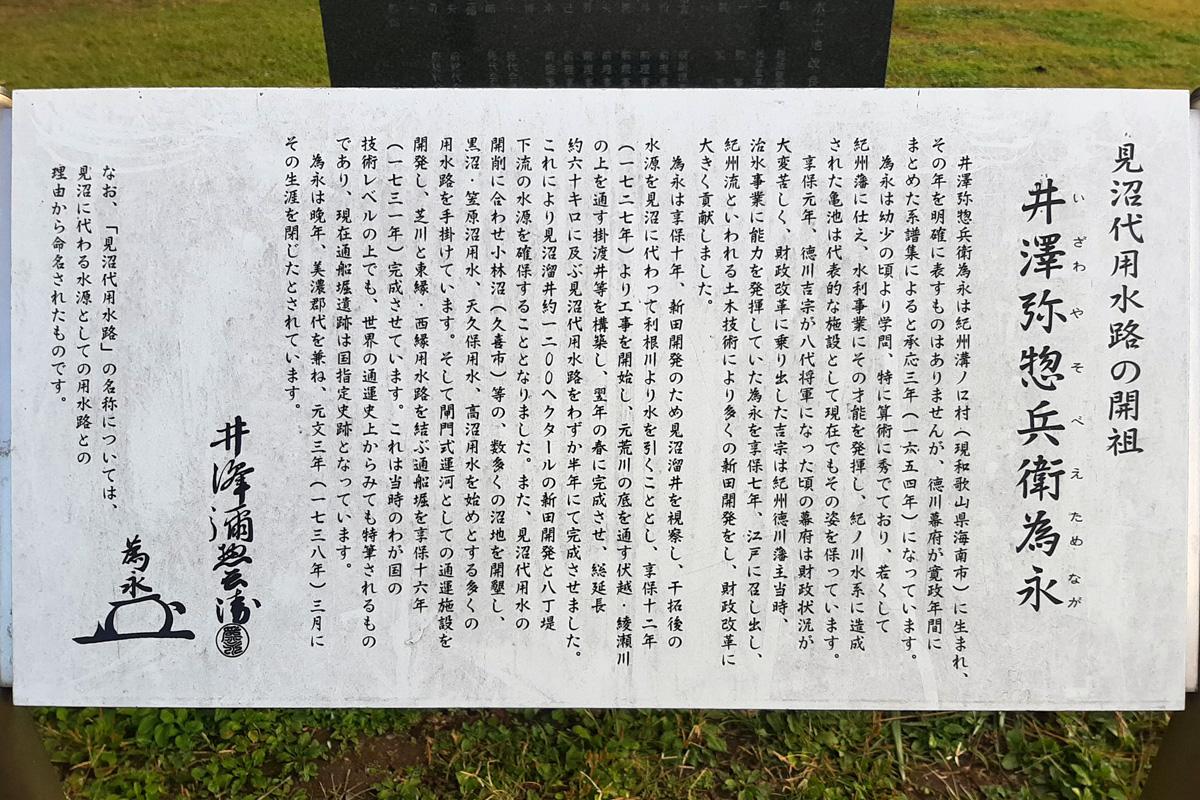 見沼代用水路の開祖
井澤弥惣兵衛為永
いざわやそべえためなが
井澤弥惣兵衛為永は紀州溝ノ口村(現和歌山県海南市)に生まれ、
その年を明確に表すものはありませんが、徳川幕府が寛政年間に
まとめた系譜集によると承応三年(一六五四年)になっています。
為永は幼少の頃より学問、特に算術に秀でており、若くして
紀州藩に仕え、水利事業にその才能を発揮し、紀ノ川水系に造成
された亀池は代表的な施設として現在でもその姿を保っています。
享保元年、徳川吉宗が八代将軍になった頃の幕府は財政状況が
大変苦しく、財政改革に乗り出した吉宗は紀州徳川藩主当時、
治水事業に能力を発揮していた為永を享保七年、江戸に召し出し、
紀州流といわれる土木技術により多くの新田開発をし、財政改革に
大きく貢献しました。
為永は享保十年、新田開発のため見沼溜井を視察し、干拓後の
水源を見沼に代わって利根川より水を引くこととし、享保十二年
(一七二七年)より工事を開始し、元荒川の底を通す伏越・綾瀬川
の上を通す掛渡井等を構築し、翌年の春に完成させ、総延長
約六十キロに及ぶ見沼代用水路をわずか半年にて完成させました。
これにより見沼溜井約一二〇〇ヘクタールの新田開発と八丁堤
下流の水源を確保することとなりました。また、見沼代用水の
開削に合わせ小林沼(久喜市)等の、数多くの沼地を開墾し、
黒沼・笠原沼用水、天久保用水、高沼用水を始めとする多くの
用水路を手掛けています。そして閘門式運河としての通運施設を
開発し、芝川と東縁・西縁用水路を結ぶ通船堀を享保十六年
(一七三一年)完成させています。これは当時のわが国の
技術レベルの上でも、世界の通運史上からみても特筆されるもの
であり、現在通船堀遺跡は国指定史跡となっています。
為永は晩年、美濃郡代を兼ね、元文三年(一七三八年)三月に
その生涯を閉じたとされています。
井澤彌惣兵衛
為永
なお、「見沼代用水路」の名称については、
見沼に代わる水源としての用水路との
理由から命名されたものです。